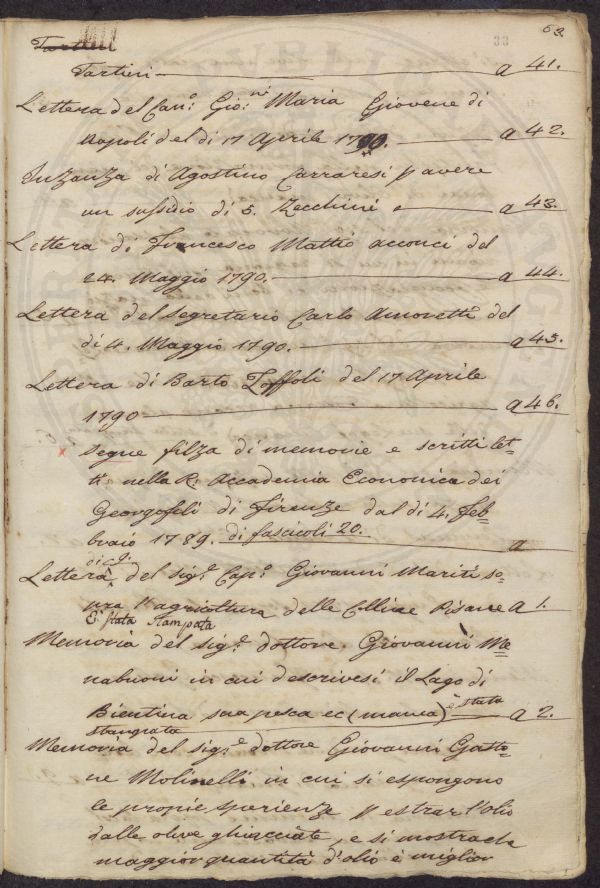 63.
33
Tartini
Tartini a 41.
Lettera del Can.º Gio:ni Maria Giovene di
Napoli del dì 17 Aprile 1790. a 42.
Instanza di Agostino Carraresi p avere
un sussidio di 5. Zecchini a 43.
Lettera di Francesco Mattio acconci del
24. Maggio 1790. a 44.
Lettera del segretario Carlo Amoretti del
dì 4. Maggio 1790. a 45.
Lettera di Barto Toffoli del 17 Aprile
1790 a 46.
Segue filza di memorie e scritti let=
ti nella R. Accademia Economica dei
Georgofili di Firenze dal dì 4. Feb=
braio 1789. di fascicoli 20. a
Lettera del sig.e Cap.º Giovanni Mariti so=
pra l'agricoltura delle Colline Pisane a 1.
È stata stampata
Memoria del sig.e dottore Giovanni Me=
nabuoni in cui descrivesi il Lago di
Bientina sua pesca ec (manca) è stata a 2.
stampata
Memoria del sig.e dottore Giovanni Gasto=
ne Molinelli in cui si espongono
le proprie sperienze p estrar l'olio
dalle olive ghiacciate, e si mostra che
maggior quantità d'olio e miglior